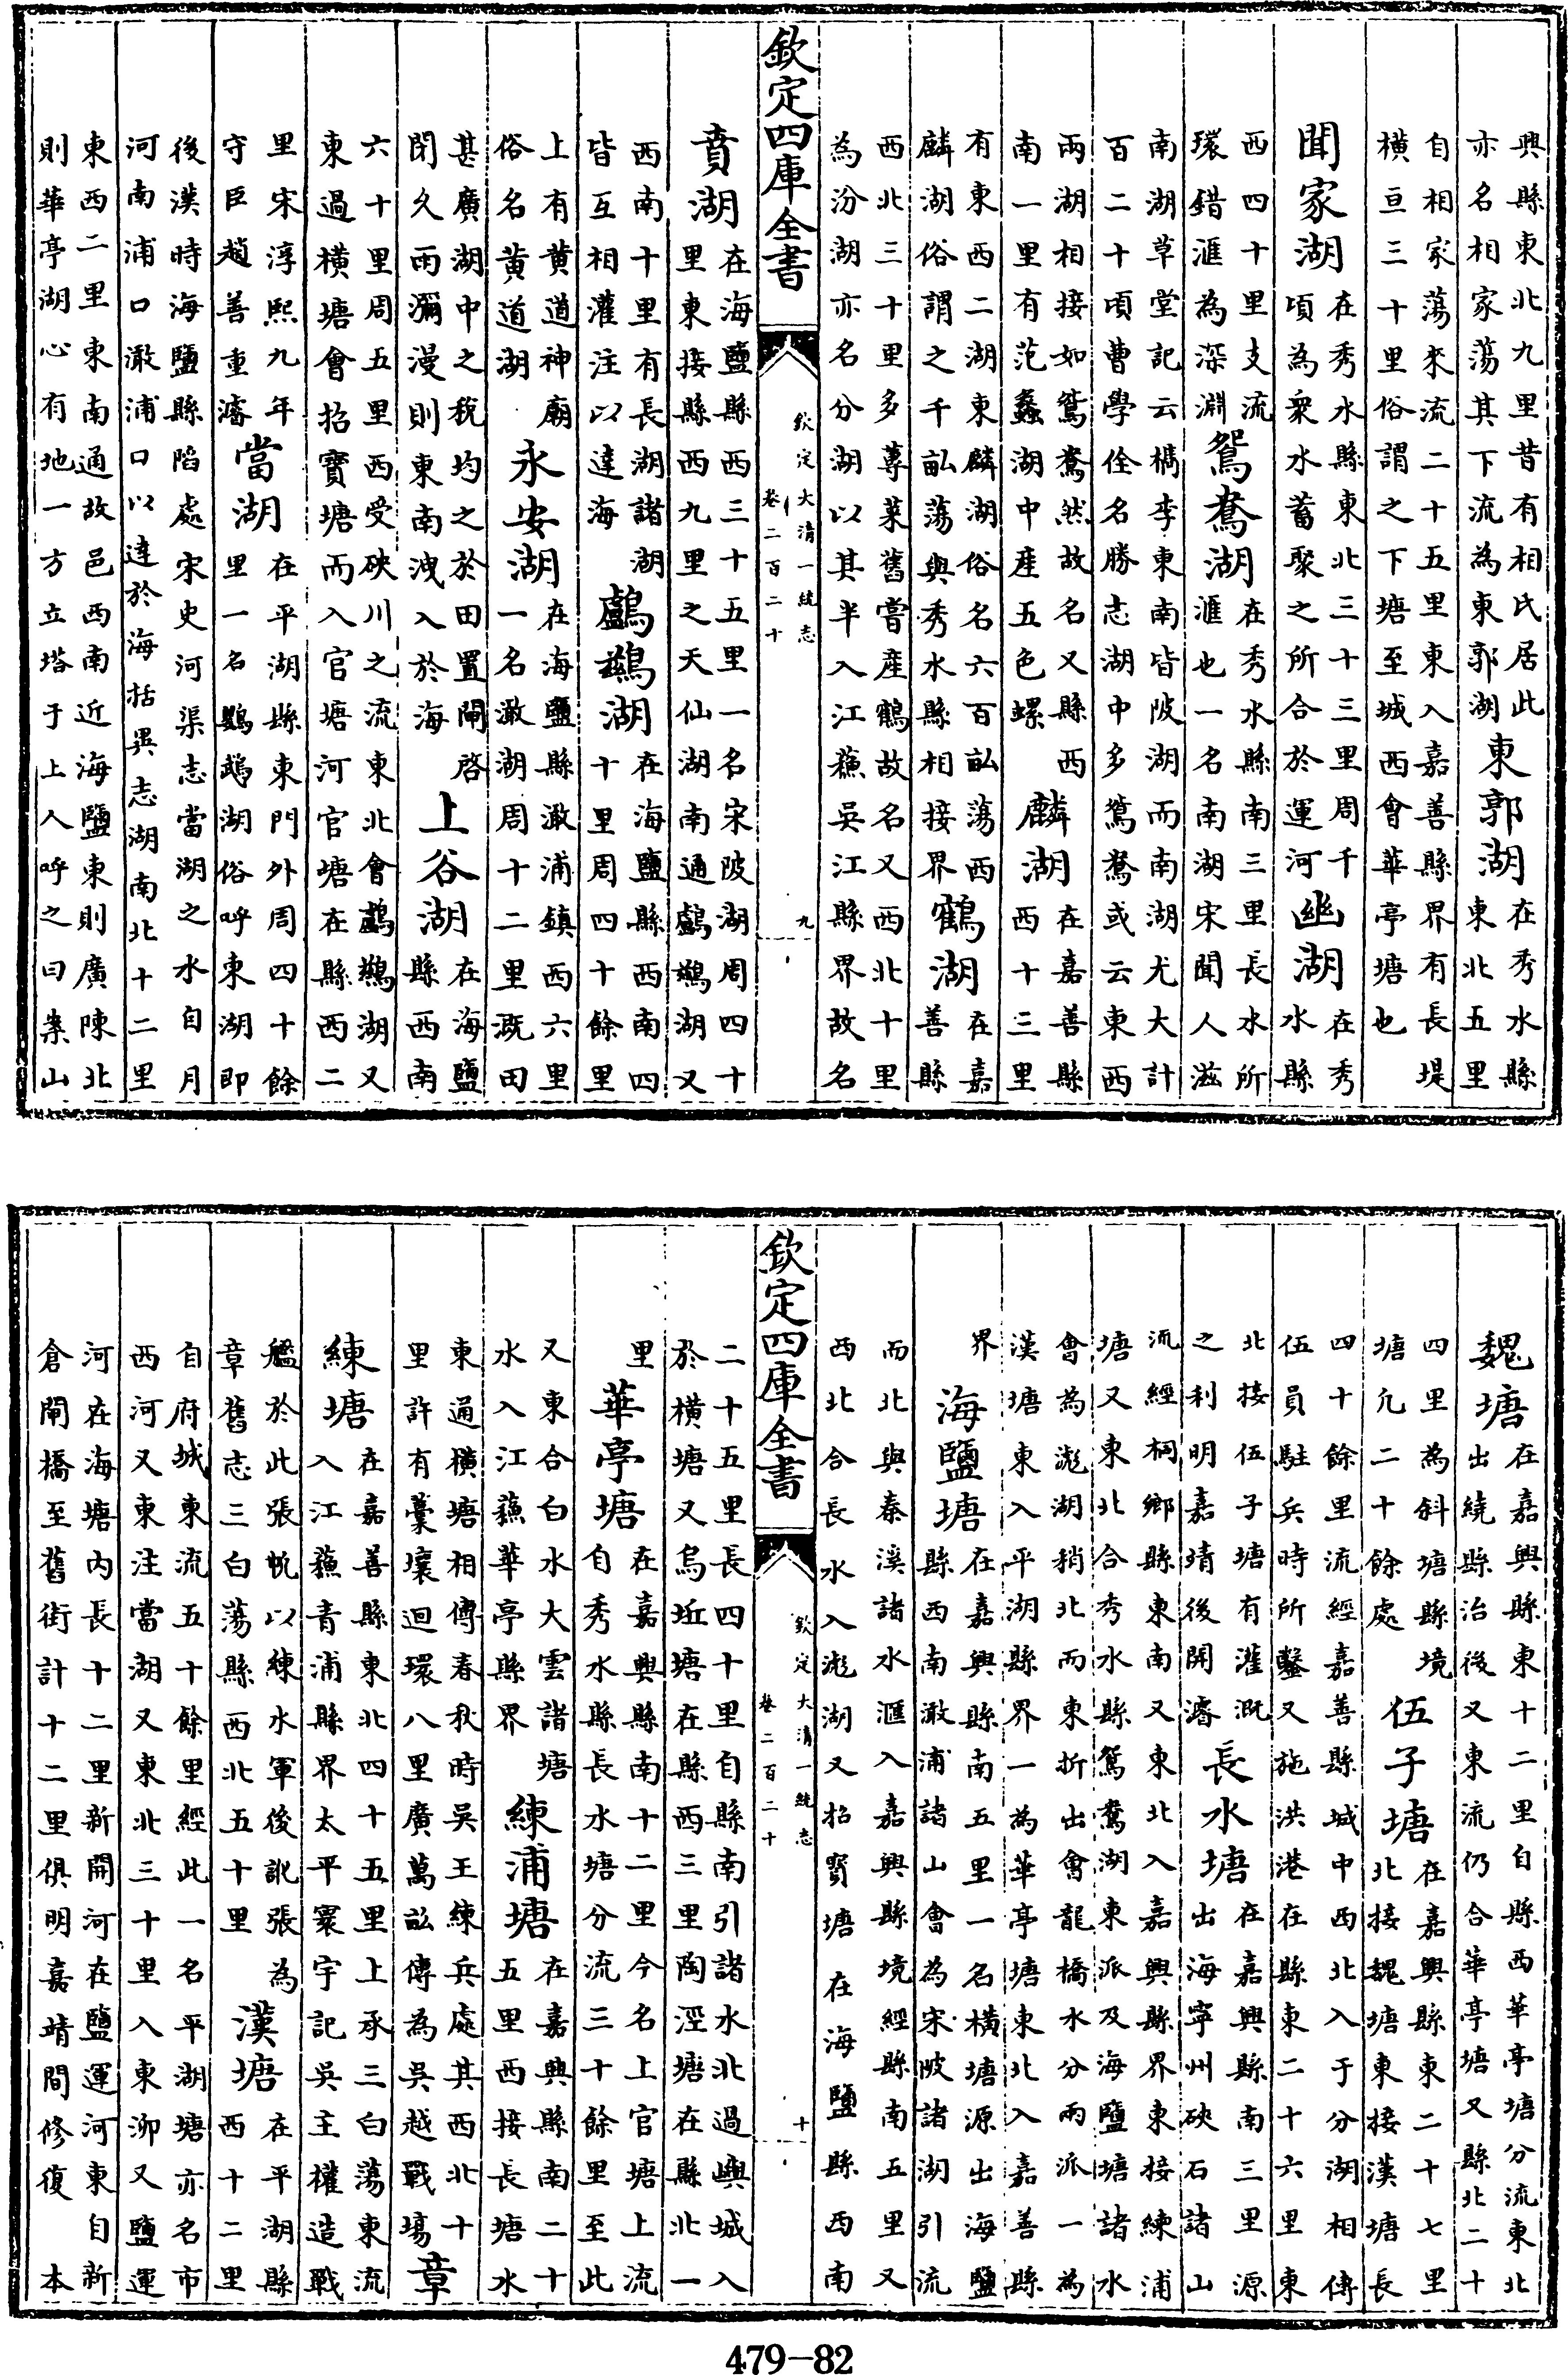 興縣東北九里昔有相氏居此
亦名相家蕩其下流為東郭湖
東郭湖
在秀水縣
東北五里
自相家蕩來流二十五里東入嘉善縣界有長堤
橫亘三十里俗謂之下塘至城西會華亭塘也
聞家湖
在秀水縣東北三十三里周千
頃為衆水蓄聚之所合於運河
幽湖
在秀
水縣
西四十里支流
環錯滙為深淵
鴛鴦湖
在秀水縣南三里長水所
滙也一名南湖宋聞人滋
南湖草堂記云檇李東南皆陂湖而南湖尤大計
百二十頃曹學佺名勝志湖中多鴛鴦或云東西
兩湖相接如鴛鴦然故名又縣西
南一里有范蠡湖中産五色螺
麟湖
在嘉善縣
西十三里
有東西二湖東麟湖俗名六百畝蕩西
麟湖俗謂之千畝蕩與秀水縣相接界
鶴湖
在嘉
善縣
西北三十里多蓴菜舊嘗産鶴故名又西北十里
為汾湖亦名分湖以其半入江蘇吳江縣界故名
欽定四庫全書
欽定大清一統志
卷二百二十
九
賁湖
在海鹽縣西三十五里一名宋陂湖周四十
里東接縣西九里之天仙湖南通鸕鶿湖又
西南十里有長湖諸湖
皆互相灌注以達海
鸕鶿湖
在海鹽縣西南四
十里周四十餘里
上有黄道神廟
俗名黄道湖
永安湖
在海鹽縣澉浦鎮西六里
一名澉湖周十二里溉田
甚廣湖中之稅均之於田置閘啓
閉久雨瀰漫則東南洩入於海
上谷湖
在海鹽
縣西南
六十里周五里西受硤川之流東北會鸕鶿湖又
東過橫塘會招寶塘而入官塘河官塘在縣西二
里宋淳熙九年
守臣趙善重濬
當湖
在平湖縣東門外周四十餘
里一名鸚鵡湖俗呼東湖即
後漢時海鹽縣陷處宋史河渠志當湖之水自月
河南浦口澉浦口以達於海括異志湖南北十二里
東西二里東南通故邑西南近海鹽東則廣陳北
則華亭湖心有地一方立塔于上人呼之曰案山
魏塘
在嘉興縣東十二里自縣西華亭塘分流東北
出繞縣治後又東流仍合華亭塘又縣北二十
四里為斜塘縣境
塘凡二十餘處
伍子塘
在嘉興縣東二十七里
北接魏塘東接漢塘長
四十餘里流經嘉善縣城中西北入于分湖相傳
伍員駐兵時所鑿又施洪港在縣東二十六里東
北接伍子塘有灌溉
之利明嘉靖後開濬
長水塘
在嘉興縣南三里源
出海寧州硤石諸山
流經桐鄉縣東南又東北入嘉興縣界東接練浦
塘又東北合秀水縣鴛鴦湖東派及海鹽塘諸水
會為滮湖稍北而東折出會龍橋水分兩派一為
漢塘東入平湖縣界一為華亭塘東北入嘉善縣
界
海鹽塘
在嘉興縣南五里一名橫塘源出海鹽
縣西南澉浦諸山會為宋陂諸湖引流
而北與秦溪諸水滙入嘉興縣境經縣南五里又
西北合長水入滮湖又招寶塘在海鹽縣西南
欽定四庫全書
欽定大清一統志
卷二百二十
十
二十五里長四十里自縣南引諸水北過嶼城入
於橫塘又烏坵塘在縣西三里陶涇塘在縣北一
里
華亭塘
在嘉興縣南十二里今名上官塘上流
自秀水縣長水塘分流三十餘里至此
又東合白水大雲諸塘
水入江蘇華亭縣界
練浦塘
在嘉興縣南二十
五里西接長塘水
東通橫塘相傳春秋時吳王練兵處其西北十
里許有藁壤迴環八里廣萬畝傳為吳越戰塲
章
練塘
在嘉善縣東北四十五里上承三白蕩東流
入江蘇青浦縣界太平寰宇記吳主權造戰
艦於此張帆以練水軍後訛張為
章舊志三白蕩縣西北五十里
漢塘
在平湖縣
西十二里
自府城東流五十餘里經此一名平湖塘亦名市
西河又東注當湖又東北三十里入東泖又鹽運
河在海塘内長十二里新開河在鹽運河東自新
倉閘橋至舊街計十二里俱明嘉靖間修復 本
479-82